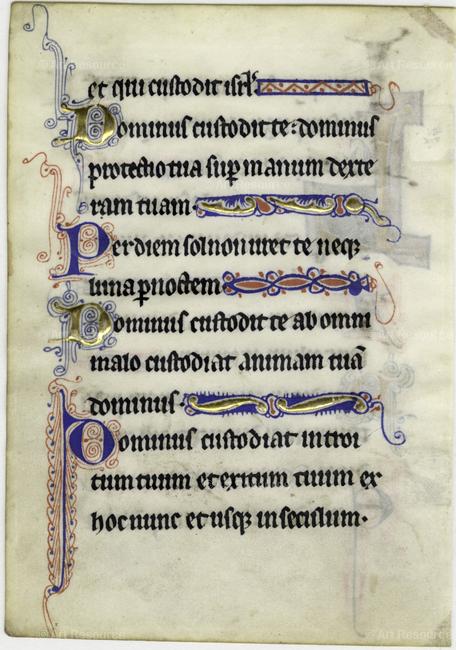 et qui custodit isrl'
Dominus custodit te: dominus
protectio tua sup manum dexte
ram tuam
Per diem sol non uret te neqz
luna p noctem
Dominus custodit te ab omni
malo custodiat animam tuā
dominus
Dominus custodiat introi
tum tuum et exitum tuum ex
hoc nunc et usqz in seculum.
© Art Resource